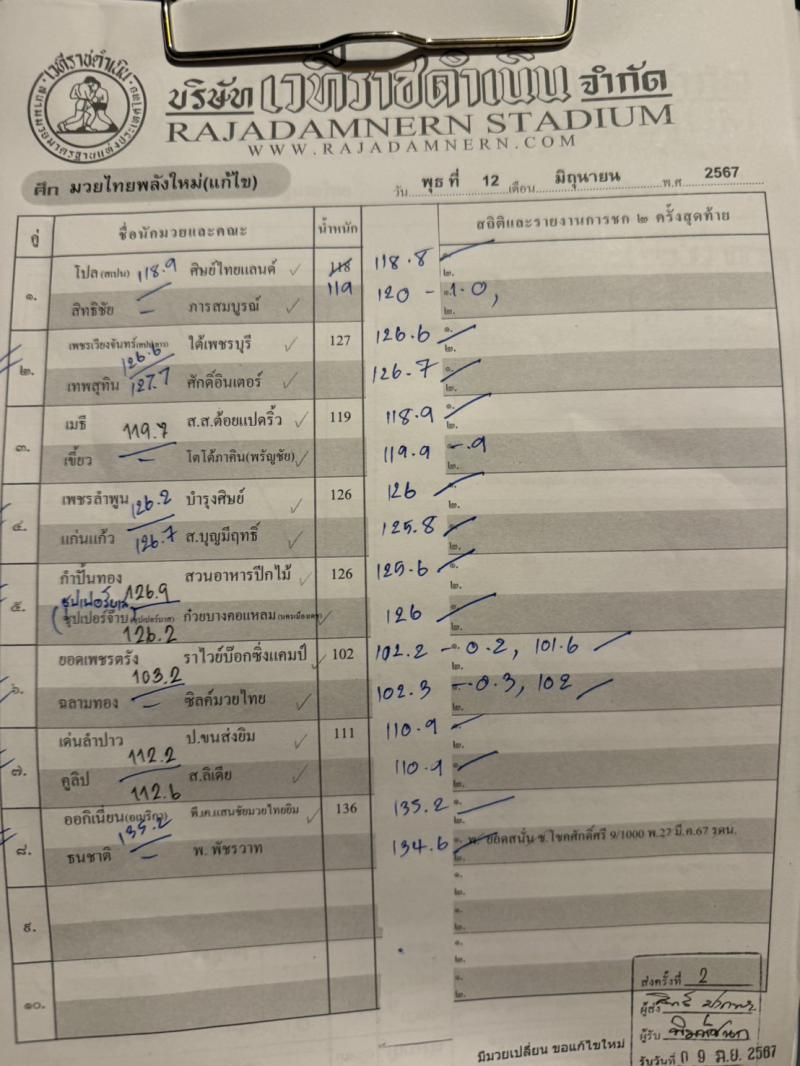 เวทีราชดำเนิน
บริษัท เวทีราชดำเนิน จำกัด
RAJADAMNERN STADIUM
WWW.RAJADAMNERN.COM
ศึก มวยไทยพลังใหม่(แก้ไข)
วัน พุธ ที่ 12 เดือน มิถุนายน พ.ศ 2567
คู่ ชื่อนักมวยและคณะ น้ำหนัก สถิติและรายงานการชก ๒ ครั้งสุดท้าย
๑. โปล (สเปน) 118.9 ศิษย์ไทยแลนด์ ✓ 118 118.8 ๒.
119
สิทธิชัย — ภารสมบูรณ์ ✓ 120 - 1.0, ๒.
๒. เพชรเวียงจันทร์ 126.6 ใต้เพชรบุรี ✓ 127 126.6 ๑. ๒.
เทพสุทิน 127.7 ศักดิ์อินเตอร์ ✓ 126.7 ๑. ๒.
๓. เมธี 119.7 ส.ส.ต้อยแปดริ้ว ✓ 119 118.9 ๑. ๒.
เขี้ยว — โตโต้ภาคิน(พรัญชัย) ✓ 119.9 - .9 ๒.
๔. เพชรลำพูน 126.2 บำรุงศิษย์ ✓ 126 126 ๒.
แก่นแก้ว 126.7 ส.บุญมีฤทธิ์ ✓ 125.8 ๑. ๒.
๕. กำปั้นทอง 126.9 สวนอาหารปีกไม้ ✓ 126 125.6 ๑. ๒.
ซุปเปอร์จ๊าบ ก๋วยบางคอแหลม ✓ 126 ๒.
126.2
๖. ยอดเพชรตรัง ราไวย์บ๊อกซิ่งแคมป์ ✓ 102 102.2 - 0.2, 101.6 ๒.
103.2
ฉลามทอง — ซิลค์มวยไทย ✓ 102.3 - 0.3, 102 ๒.
๗. เด่นลำปาว 112.2 ป.ขนส่งยิม ✓ 111 110.9 ๑. ๒.
คูลิป 112.6 ส.ลิเดีย ✓ 110.9 ๑. ๒.
๘. ออกิเนี่ยน(อเมริกา) 135.2 พี.เค.แสนชัยมวยไทยยิม ✓ 136 135.2 ๑. ๒.
ธนชาติ — พ. พัชรวาท 134.6 ๑. พ. ยอดสนั่น ช.โชคศักดิ์ศรี 9/1000 พ.27 มี.ค.67 รดน.
๒.
๙. ๑. ๒.
๑. ๒.
๑๐. ๑. ๒.
๑. ๒.
ส่งครั้งที่ 2
ผู้ส่ง
ผู้รับ
มีมวยเปลี่ยน ขอแก้ไขใหม่
รับวันที่ 0 9 มิ.ย. 2567